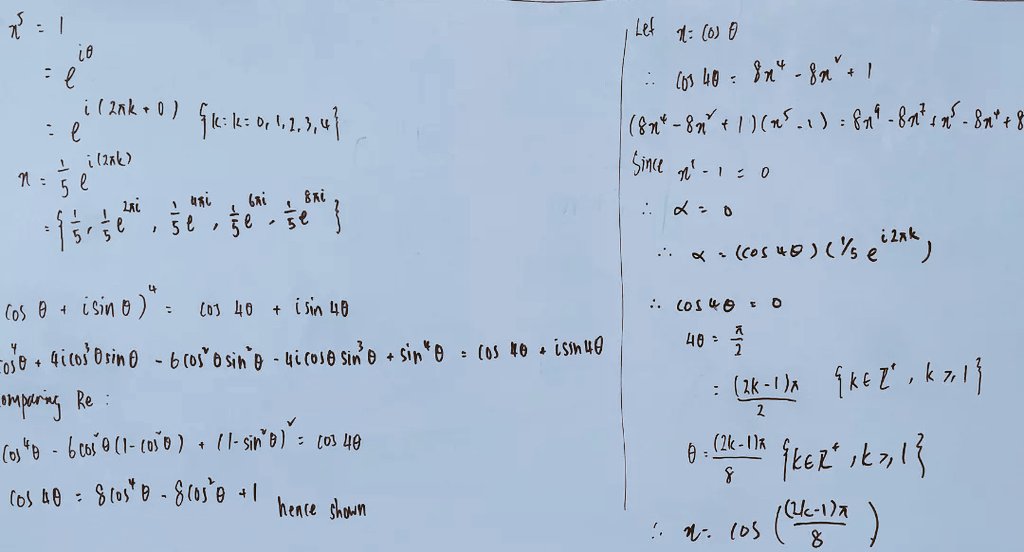 x⁵ = 1
= e^{iθ}
= e^{i(2πk + 0)} {k: k = 0, 1, 2, 3, 4}
x = 1/5 e^{i(2πk)}
= {1/5, 1/5 e^{2πi}, 1/5 e^{4πi}, 1/5 e^{6πi}, 1/5 e^{8πi}}
cos θ + i sin θ)⁴ = cos 4θ + i sin 4θ
cos⁴θ + 4i cos³θ sin θ - 6 cos²θ sin²θ - 4i cos θ sin³θ + sin⁴θ = cos 4θ + i sin 4θ
omparing Re :
cos⁴θ - 6 cos²θ (1 - cos²θ) + (1 - sin²θ)² = cos 4θ
cos 4θ = 8 cos⁴θ - 8 cos²θ + 1
hence shown
Let x = cos θ
∴ cos 4θ = 8x⁴ - 8x² + 1
(8x⁴ - 8x² + 1)(x⁵ - 1) = 8x⁹ - 8x⁷ + x⁵ - 8x⁴ + 8
Since x⁵ - 1 = 0
∴ α = 0
∴ α = (cos 4θ)(1/5 e^{i2πk})
∴ cos 4θ = 0
4θ = π/2
= (2k-1)π/2 {k ∈ ℤ⁺, k ≥ 1}
θ = (2k-1)π/8 {k ∈ ℤ⁺, k ≥ 1}
∴ x = cos ((2k-1)π/8)